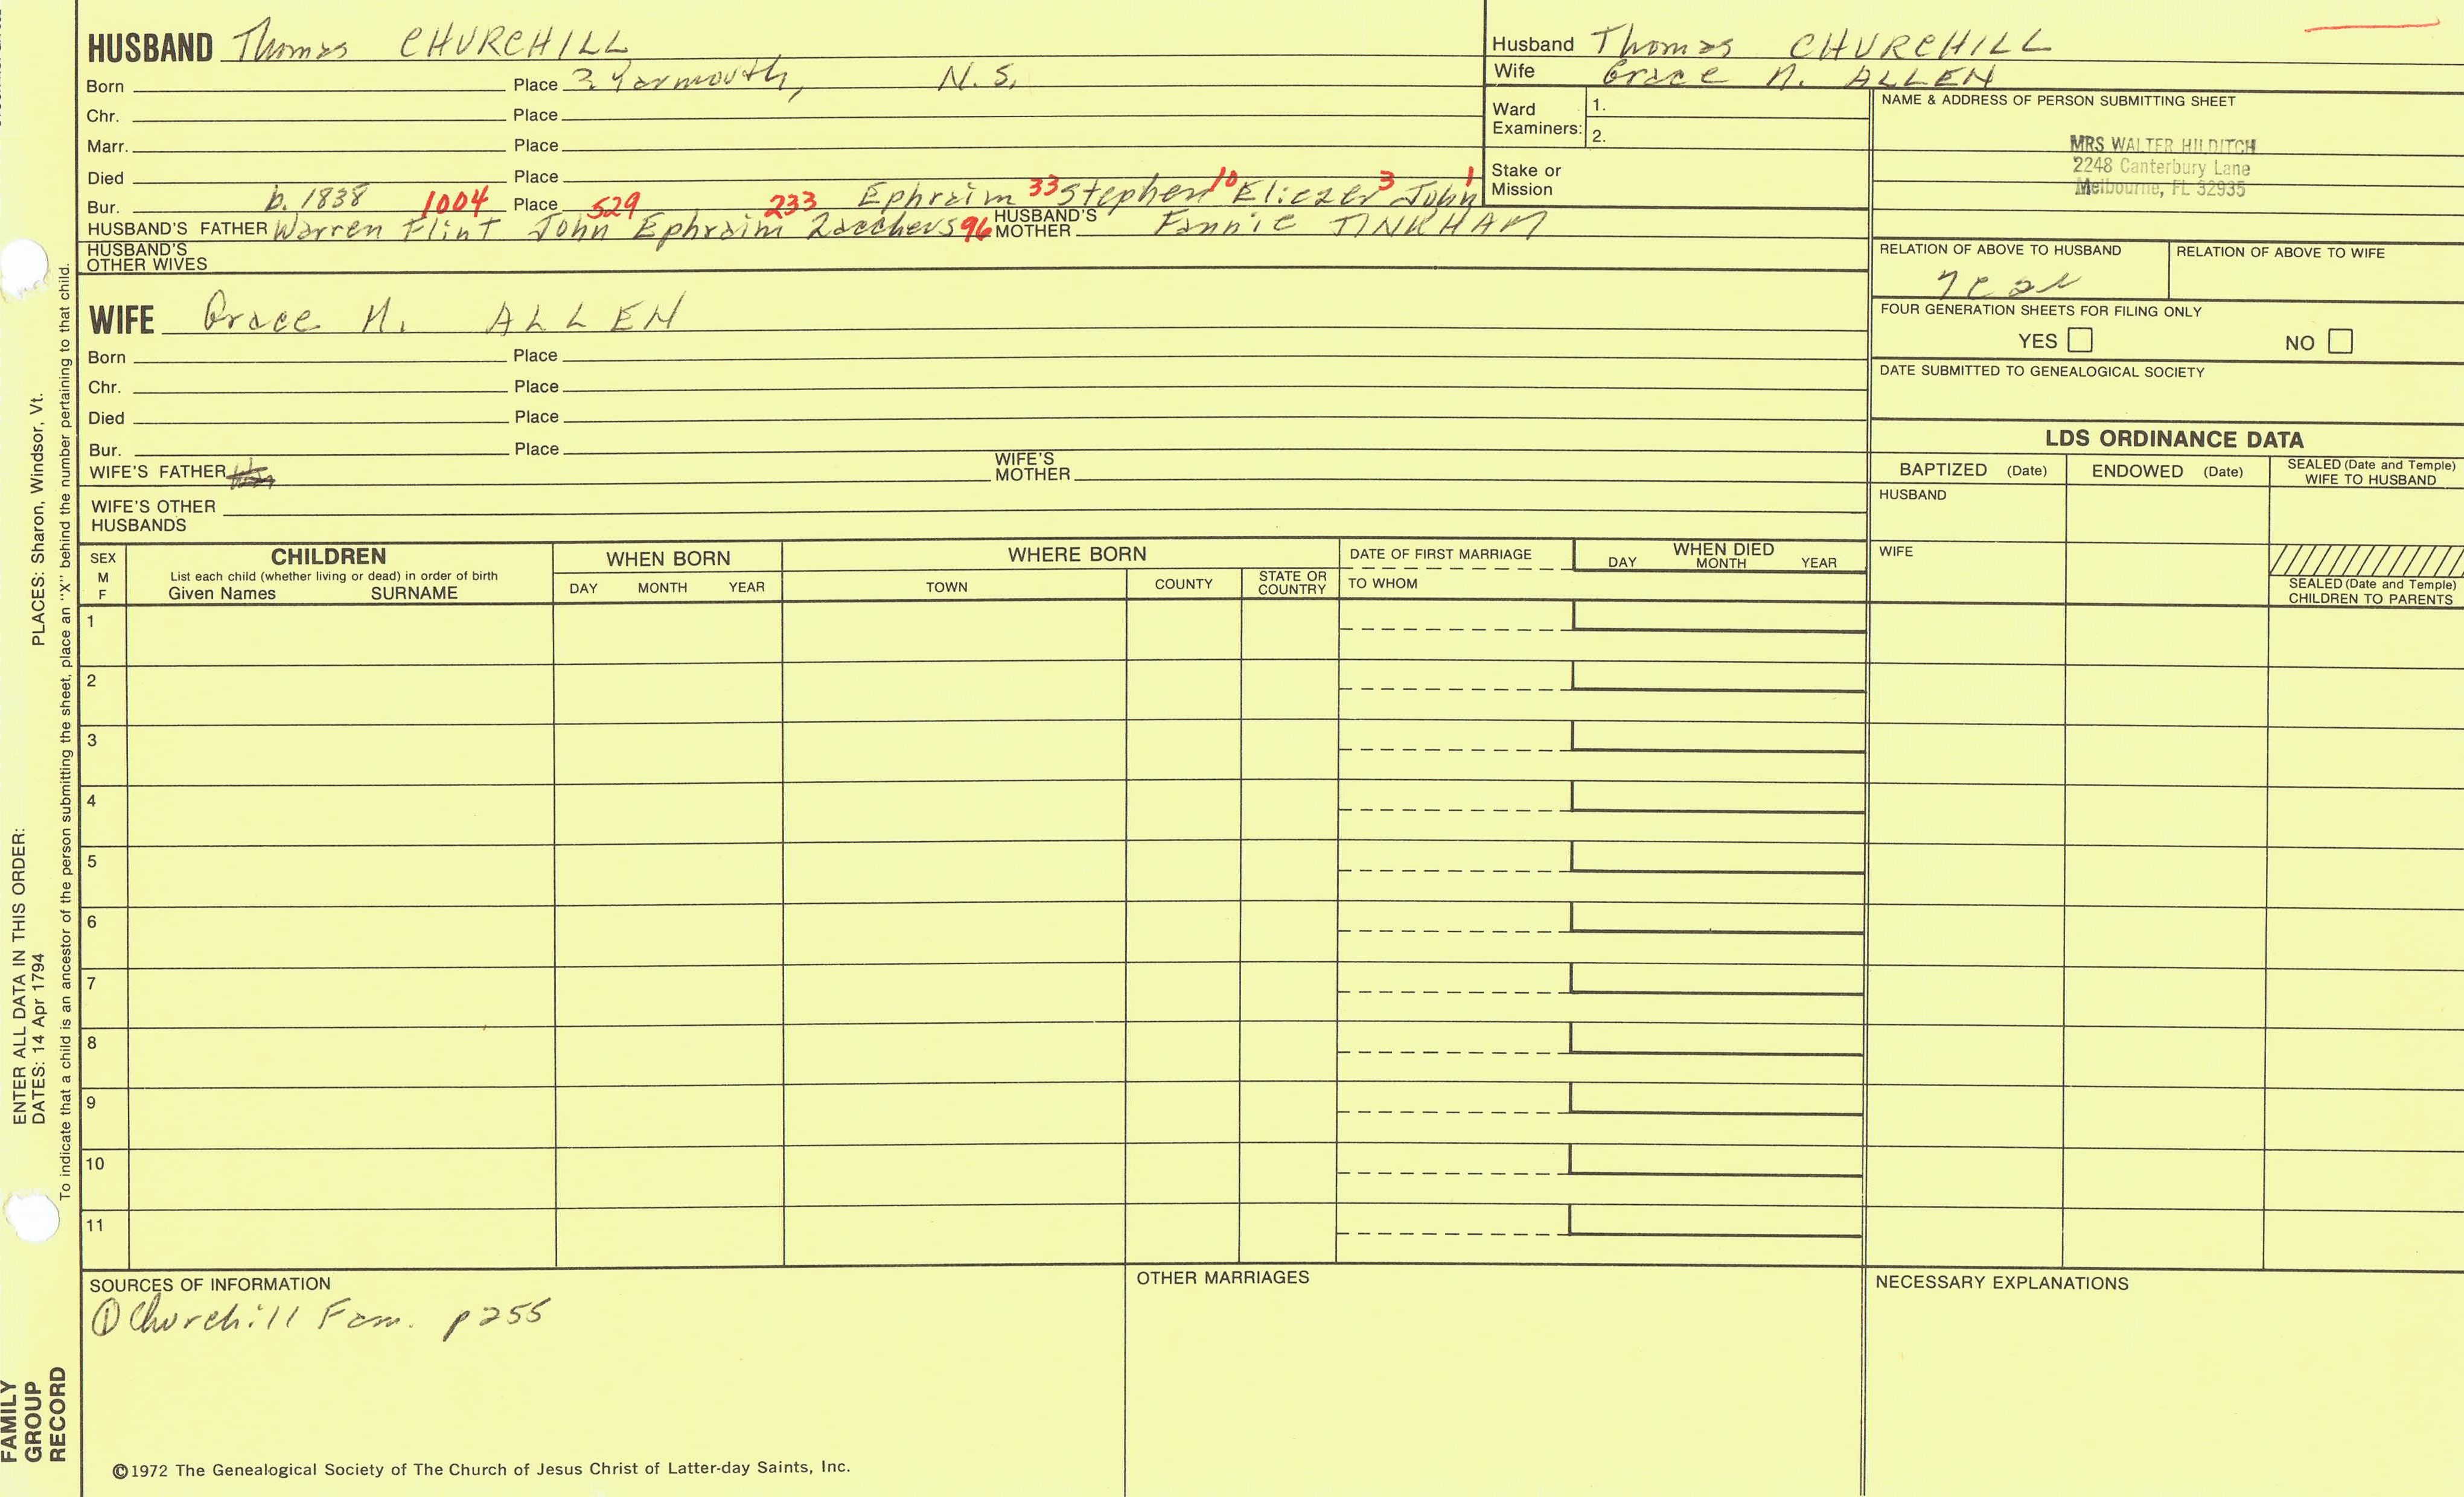 HUSBAND Thomas CHURCHILL
Born Place ? Yarmouth, N.S.
Chr. Place
Marr. Place
Died Place
b. 1838 1004 529 233 Ephraim 33 Stephen 10 Eliezer 3 John 1
Bur. Place
HUSBAND'S FATHER Warren Flint John Ephraim Zaccheus 96 HUSBAND'S MOTHER Fannie TINKHAM
HUSBAND'S OTHER WIVES
Husband Thomas CHURCHILL
Wife Grace N. ALLEN
Ward Examiners: 1.
2.
Stake or Mission
NAME & ADDRESS OF PERSON SUBMITTING SHEET
MRS WALTER HILDITCH
2248 Canterbury Lane
Melbourne, FL 32935
RELATION OF ABOVE TO HUSBAND RELATION OF ABOVE TO WIFE
FOUR GENERATION SHEETS FOR FILING ONLY
YES NO
DATE SUBMITTED TO GENEALOGICAL SOCIETY
WIFE Grace N. ALLEN
Born Place
Chr. Place
Died Place
Bur. Place
WIFE'S FATHER WIFE'S MOTHER
WIFE'S OTHER HUSBANDS
LDS ORDINANCE DATA
BAPTIZED (Date) ENDOWED (Date) SEALED (Date and Temple) WIFE TO HUSBAND
HUSBAND
WIFE
SEALED (Date and Temple) CHILDREN TO PARENTS
SEX M F
CHILDREN
List each child (whether living or dead) in order of birth
Given Names SURNAME
WHEN BORN
DAY MONTH YEAR
WHERE BORN
TOWN COUNTY STATE OR COUNTRY
DATE OF FIRST MARRIAGE
TO WHOM
WHEN DIED
DAY MONTH YEAR
1
2
3
4
5
6
7
8
9
10
11
SOURCES OF INFORMATION
① Churchill Fam. p 255
OTHER MARRIAGES
NECESSARY EXPLANATIONS
©1972 The Genealogical Society of The Church of Jesus Christ of Latter-day Saints, Inc.
FAMILY GROUP RECORD
ENTER ALL DATA IN THIS ORDER:
DATES: 14 Apr 1794 PLACES: Sharon, Windsor, Vt.
To indicate that a child is an ancestor of the person submitting the sheet, place an "X" behind the number pertaining to that child.